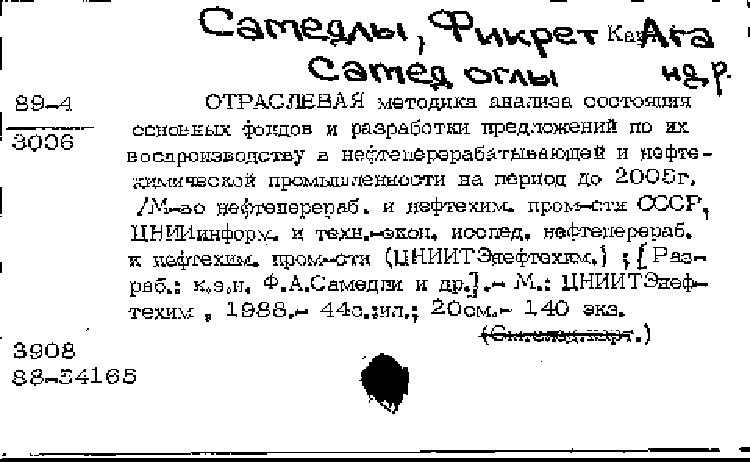 Самедлы, Фикрет Ага
Самед оглы и др.
89-4
3006
ОТРАСЛЕВАЯ методика анализа состояния
основных фондов и разработки предложений по их
воспроизводству в нефтеперерабатывающей и нефте-
химической промышленности на период до 2005г.
/М-во нефтеперераб. и нефтехим. пром-сти СССР,
ЦНИИинформ. и техн.-экон. исслед. нефтеперераб.
и нефтехим. пром-сти (ЦНИИТЭнефтехим.) ; [Раз-
раб.: к.э.н. Ф.А.Самедли и др.].- М.: ЦНИИТЭнеф-
техим , 1988.- 44с.:ил.; 20см.- 140 экз.
(См.след.карт.)
3908
88-54165